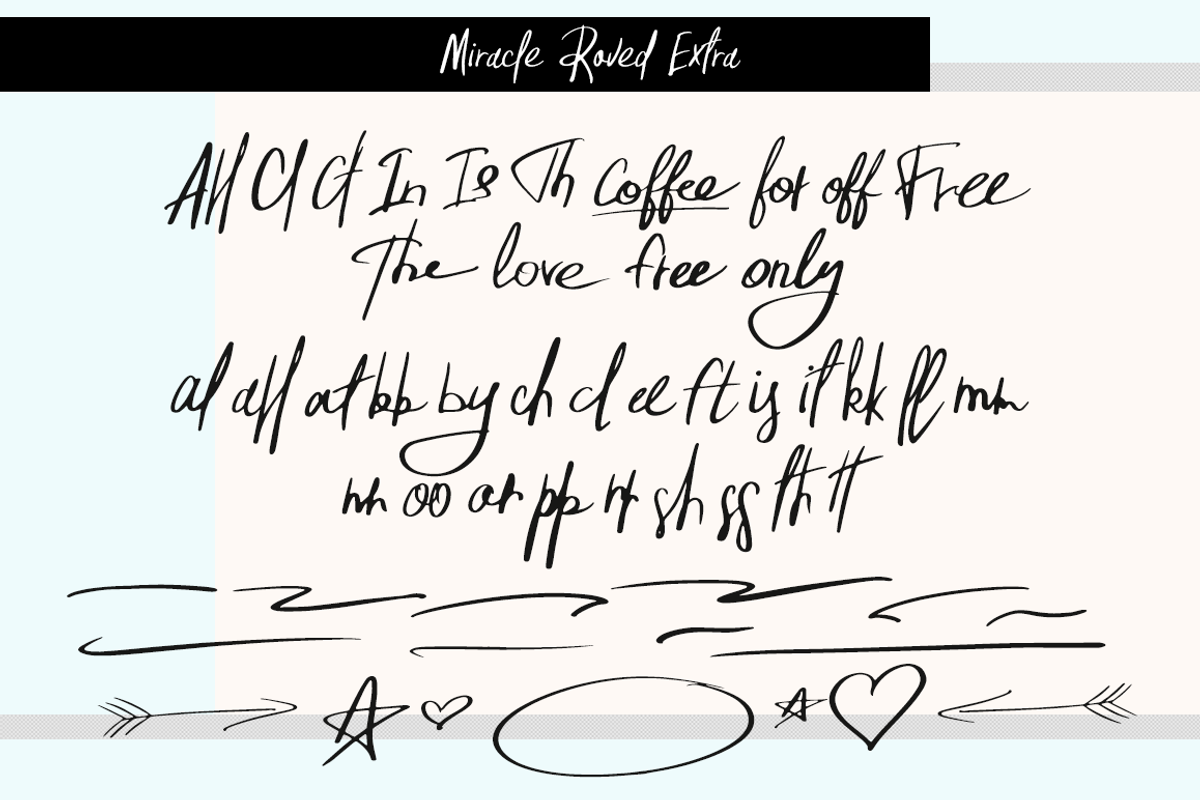 Miracle Roved Extra
All Cl Ct In Is Th Coffee for off Free
The love free only
al all at bb by ch cl ee ft is it kk ll mm
nn oo or pp rr sh ss th tt